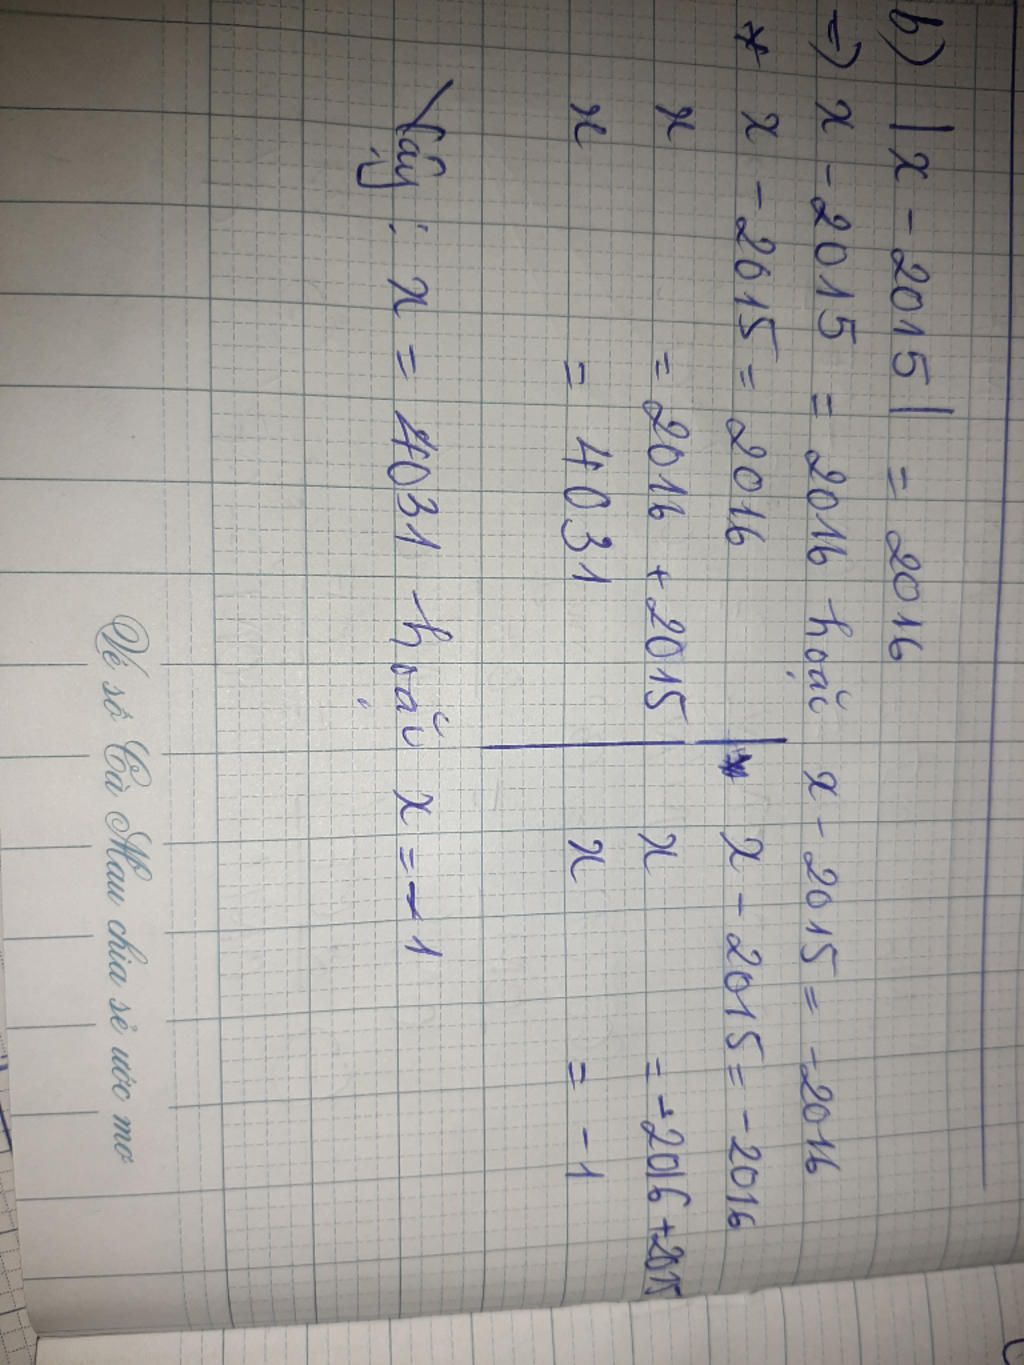 b) | x - 2015 | = 2016
=) x - 2015 = 2016 hoặc x - 2015 = -2016
* x - 2015 = 2016 * x - 2015 = -2016
x = 2016 + 2015 x = -2016 + 2015
x = 4031 x = -1
Vậy : x = 4031 hoặc x = -1
Vé số Cà Mau chia sẻ ước mơ